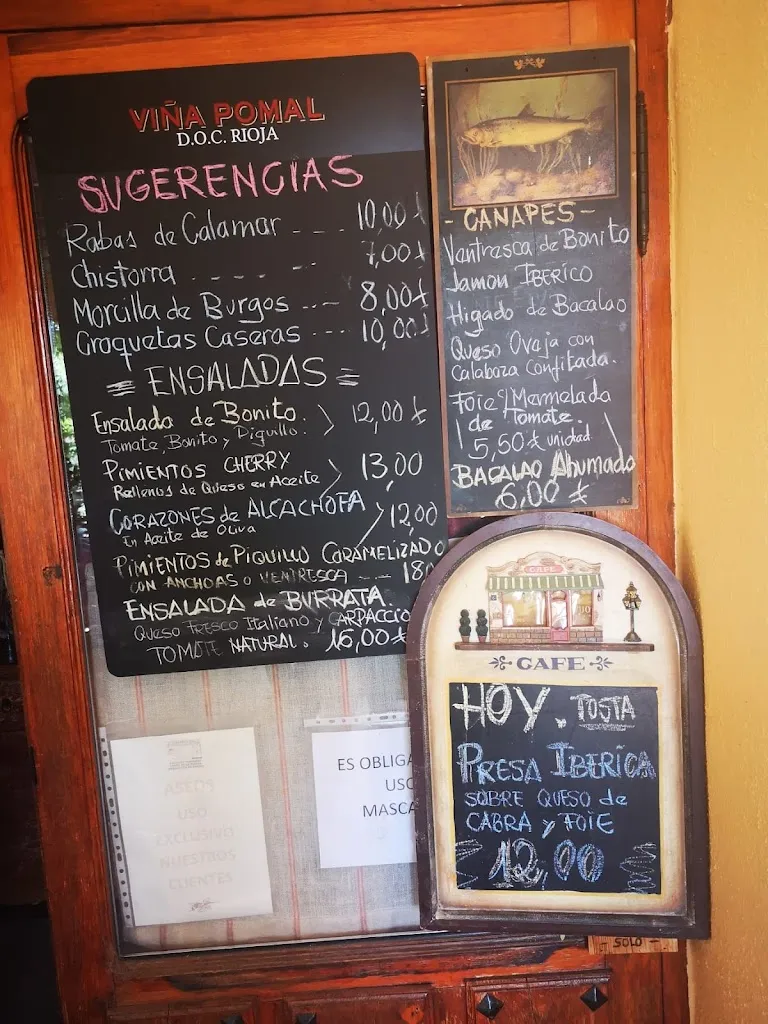 VIÑA POMAL
D.O.C. RIOJA
SUGERENCIAS
Rabas de Calamar --- 10,00 €
Chistorra ----- 7,00 €
Morcilla de Burgos --- 8,00 €
Croquetas Caseras --- 10,00
= ENSALADAS =
Ensalada de Bonito. 12,00 €
Tomate, Bonito y Piquillo.
PIMIENTOS CHERRY 13,00
Rellenos de Queso en Aceite
CORAZONES de ALCACHOFA 12,00
En Aceite de Oliva
PIMIENTOS de PIQUILLO CARAMELIZADO
CON ANCHOAS O VENTRESCA --- 18
ENSALADA de BURRATA.
QUESO FRESCO Italiano y CARPACCIO
TOMATE NATURAL. 16,00 €
- CANAPES -
Ventresca de Bonito
Jamon IBERICO
Higado de Bacalao
Queso Oveja con
Calabaza Confitada.
Foie y Mermelada
de Tomate.
5,50 € unidad
BACALAO Ahumado
6,00 €
CAFE
CAFE
HOY. TOSTA
PRESA IBERICA
SOBRE QUESO de
CABRA y FOIE
12,00
ASEOS
USO
EXCLUSIVO
NUESTROS
CLIENTES
ES OBLIGA
USO
MASCA
SOLO